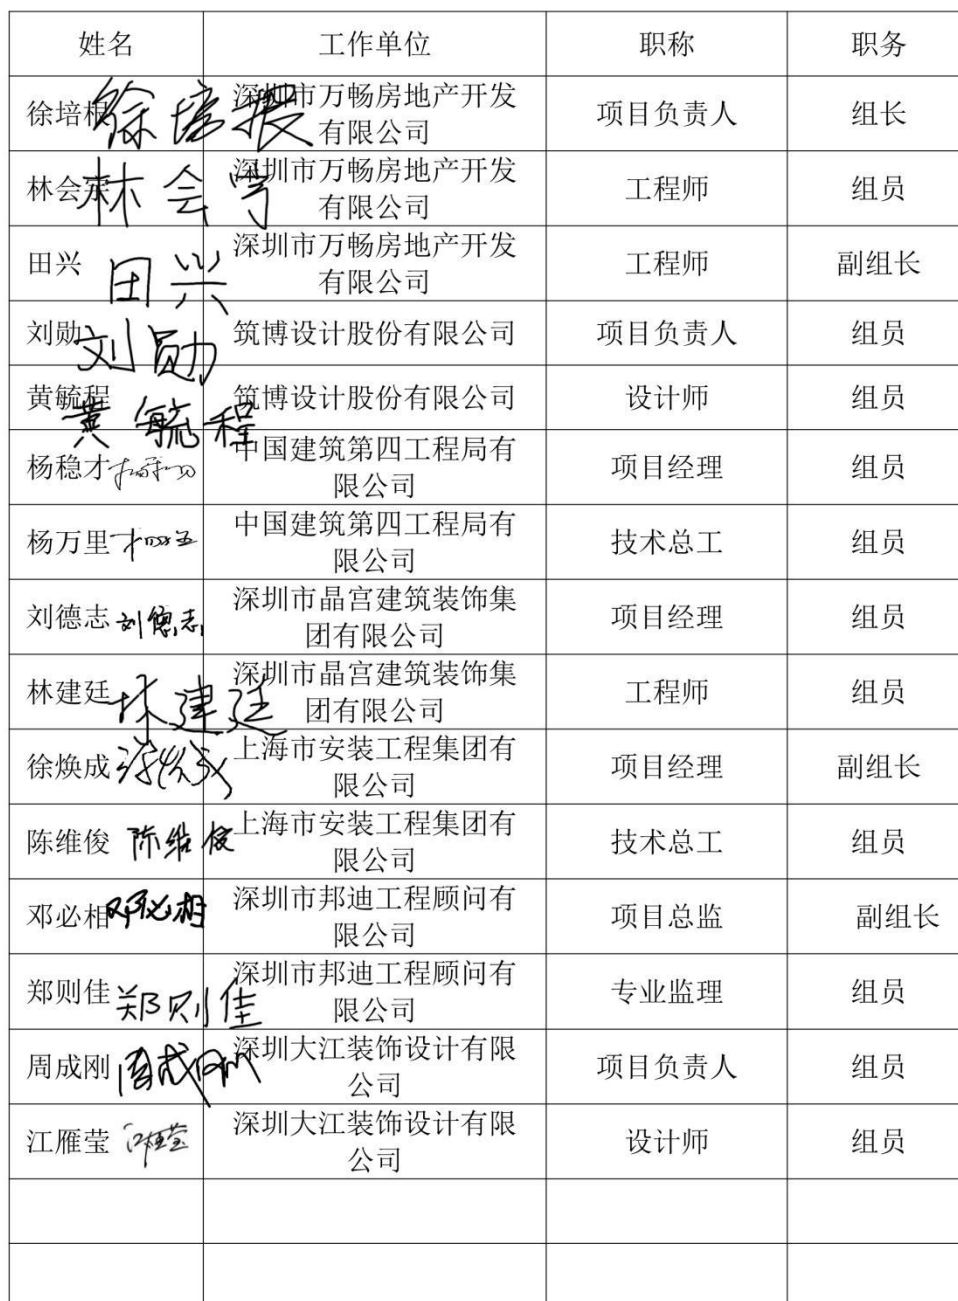 姓名 工作单位 职称 职务
徐培根 徐培根 深圳市万畅房地产开发
有限公司 项目负责人 组长
林会 林会 深圳市万畅房地产开发
有限公司 工程师 组员
田兴 田兴 深圳市万畅房地产开发
有限公司 工程师 副组长
刘勋 刘勋 筑博设计股份有限公司 项目负责人 组员
黄毓程 黄毓程 筑博设计股份有限公司 设计师 组员
杨稳才 中国建筑第四工程局有
限公司 项目经理 组员
杨万里 中国建筑第四工程局有
限公司 技术总工 组员
刘德志 刘德志 深圳市晶宫建筑装饰集
团有限公司 项目经理 组员
林建廷 林建廷 深圳市晶宫建筑装饰集
团有限公司 工程师 组员
徐焕成 上海市安装工程集团有
限公司 项目经理 副组长
陈维俊 陈维俊 上海市安装工程集团有
限公司 技术总工 组员
邓必相 邓必相 深圳市邦迪工程顾问有
限公司 项目总监 副组长
郑则佳 郑则佳 深圳市邦迪工程顾问有
限公司 专业监理 组员
周成刚 周成刚 深圳大江装饰设计有限
公司 项目负责人 组员
江雁莹 江雁莹 深圳大江装饰设计有限
公司 设计师 组员